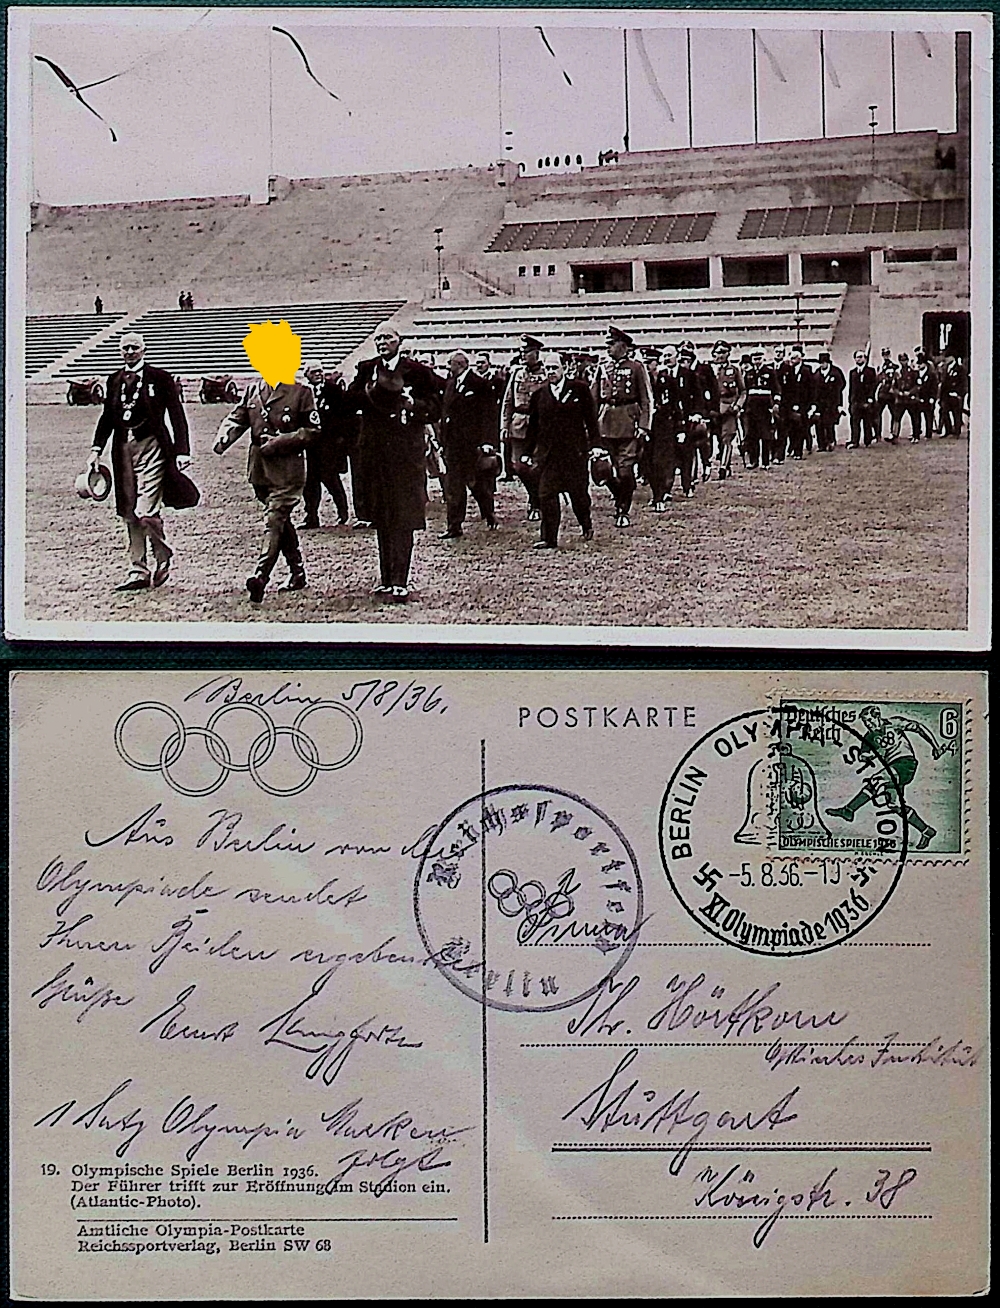 Berlin 5/8/36.
POSTKARTE
Deutsches
Reich
6
+4
OLYMPISCHE SPIELE 1936
BERLIN OLYMPIA-STADION
-5.8.36.-10
XI. Olympiade 1936
Reichssportfeld
Berlin
Aus Berlin von der
Olympiade sendet
Ihnen Beiden ergebenste
Grüße
Ernst
1 Satz Olympia Marken
folgt
Firma
Hörtkorn
Optisches Institut
Stuttgart
Königstr. 38
19. Olympische Spiele Berlin 1936.
Der Führer trifft zur Eröffnung im Stadion ein.
(Atlantic-Photo).
Amtliche Olympia-Postkarte
Reichssportverlag, Berlin SW 68